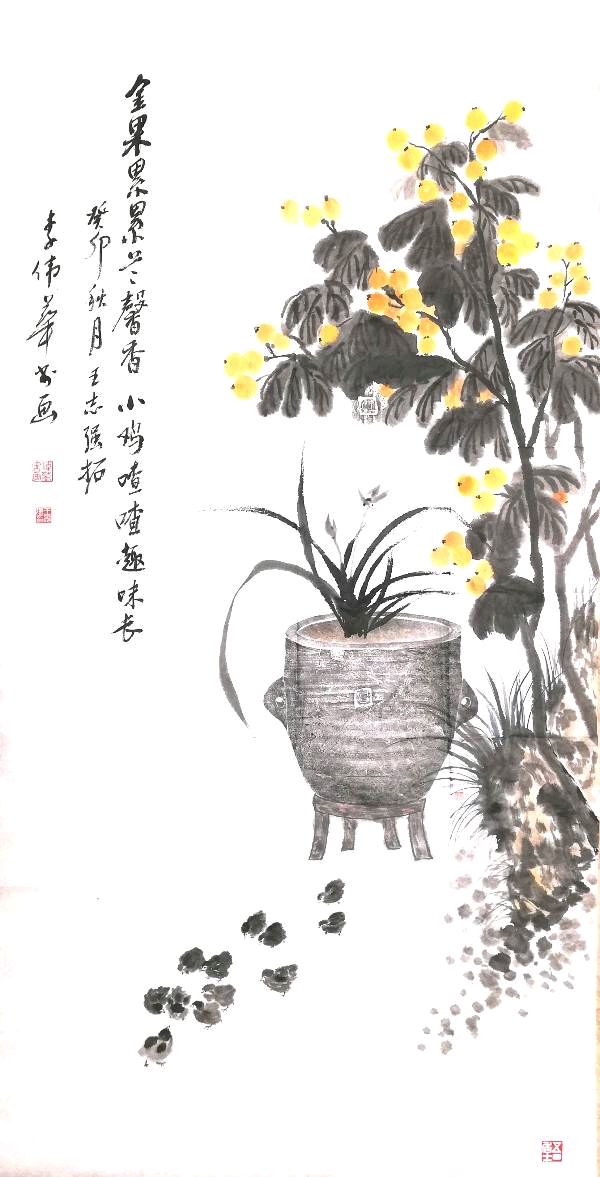 金果累累兰馨香 小鸡喳喳趣味长
癸卯秋月王志强拓
李伟華书画